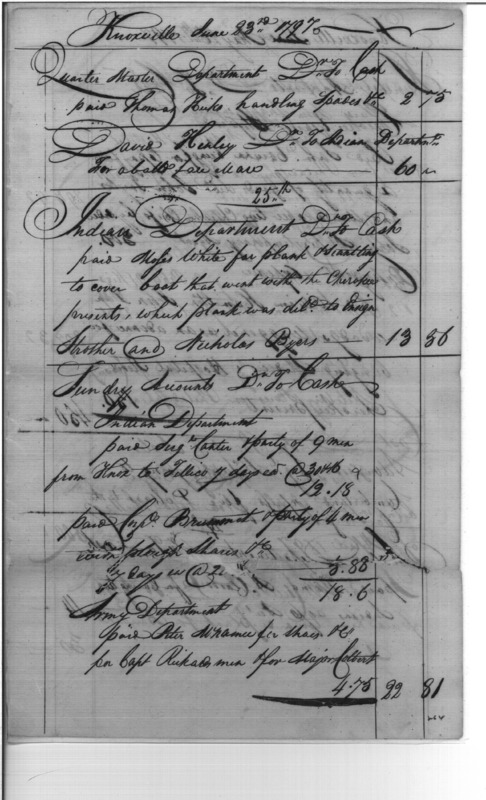 Knoxville June 23rd 1797
Quarter Master Department Dr. To Cash
paid Thomas Hicks handling Spades &c 2 75
David Henley Dr. To Indian Departmt.
For a battd fair Mare 60 "
25th
Indian Department Dr. To Cash
paid Moses White for plank & Scantling
to cover boat that went with the Cherokee
presents, which plank was deld. to Ensign
Strother and Nicholas Byers 13 36
Sundry Accounts Dr. To Cash
Indian Department
paid Sergt. Canter & party of 9 men
from Knox to Tellico 7 days ea @
12.18
paid Corpl. & party of 4 men
with plough Shares &c
7 days ea @ 5.88
18.6
Army Department
paid Peter for Shoes &c
for Capt Rickards men & for Major Colbert
4.75 22 81